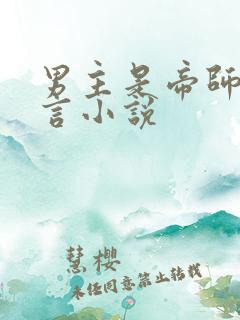 男主是帝師
言小説
慧櫻
未经同意禁止转载